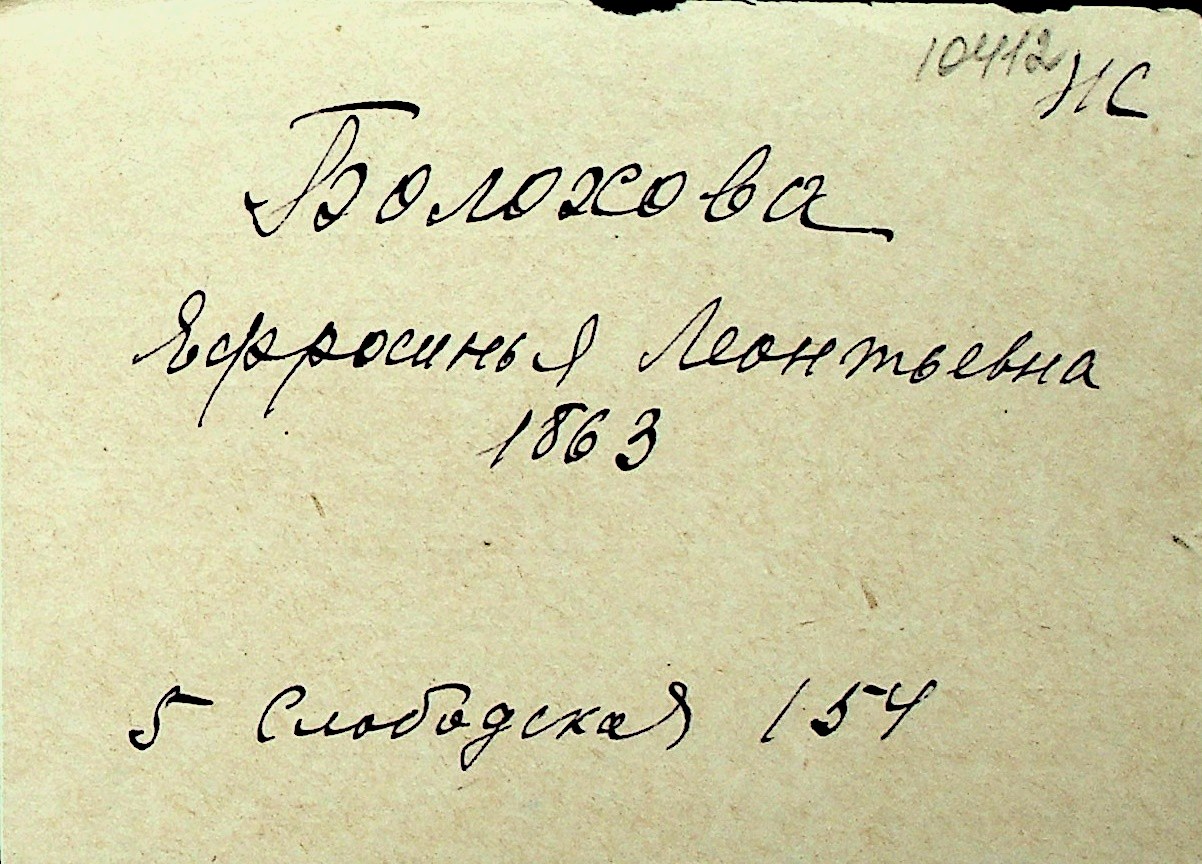 10412 ЖС
Болохова
Ефросинья Леонтьевна
1863
5 Слободская 154